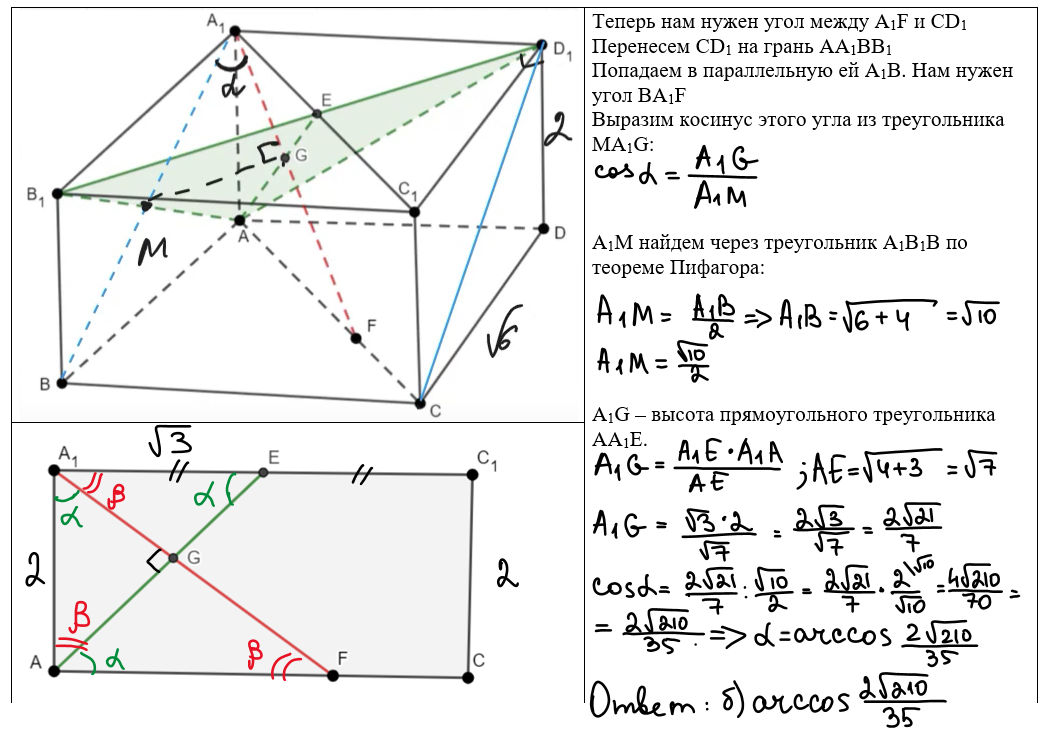 Теперь нам нужен угол между A₁F и CD₁
Перенесем CD₁ на грань AA₁BB₁
Попадаем в параллельную ей A₁B. Нам нужен
угол BA₁F
Выразим косинус этого угла из треугольника
MA₁G:
cosα = A₁G / A₁M
A₁M найдем через треугольник A₁B₁B по
теореме Пифагора:
A₁M = A₁B / 2 => A₁B = √(6+4) = √10
A₁M = √10 / 2
A₁G – высота прямоугольного треугольника
AA₁E.
A₁G = A₁E · A₁A / AE ; AE = √(4+3) = √7
A₁G = √3 · 2 / √7 = 2√3 / √7 = 2√21 / 7
cosα = 2√21 / 7 : √10 / 2 = 2√21 / 7 · 2 \√10 / √10 = 4√210 / 70 =
= 2√210 / 35 => α = arccos 2√210 / 35
Ответ: б) arccos 2√210 / 35
A₁
α
D₁
E
2
G
B₁
C₁
A
D
M
F
√6
B
C
√3
A₁
E
C₁
β
α
α
2
G
2
β
A
α
β
F
C